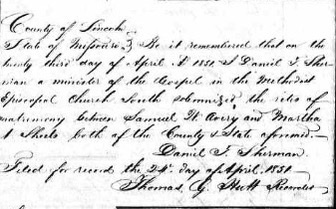 County of Lincoln
State of Missouri } Be it remembered that on the
twenty third day of April A 1851 I Daniel T. Sher
man a minister of the Gospel in the Methodist
Episcopal Church South solemnized the rites of
matrimony between Samuel W. and Martha
A both of the County & State aforesaid.
Daniel T. Sherman.
Filed for record the 24th day of April 1851.
Thomas G. Hutt Recorder